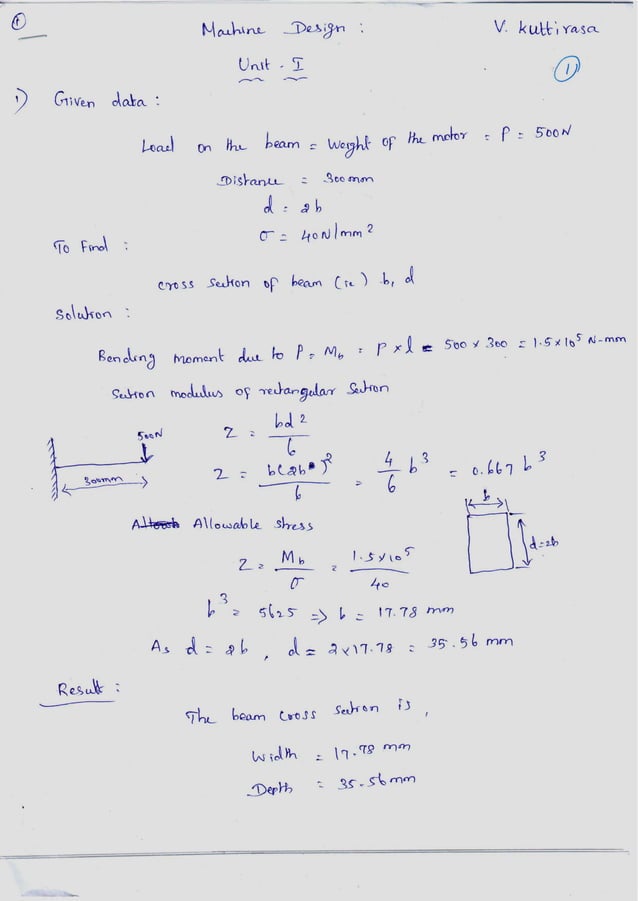 ①
Machine Design :
V. kuttirasa
Unit - I
①
1) Given data :
Load on the beam = Weight of the motor = P = 500N
Distance = 300mm
d = 2b
σ = 40N/mm²
To Find :
cross section of beam (ie) b, d
Solution :
Bending moment due to P = M_b = P × l = 500 × 300 = 1.5×10⁵ N-mm
Section modulus of rectangular Section
Z = bd²/6
500N
300mm
Z = b(2b)²/6 = 4/6 b³ = 0.667 b³
b
d=2b
Allowable stress
Z = M_b/σ = 1.5×10⁵/40
b³ = 5625 => b = 17.78 mm
As d = 2b, d = 2×17.78 = 35.56 mm
Result :
The beam cross section is,
Width = 17.78 mm
Depth = 35.56mm